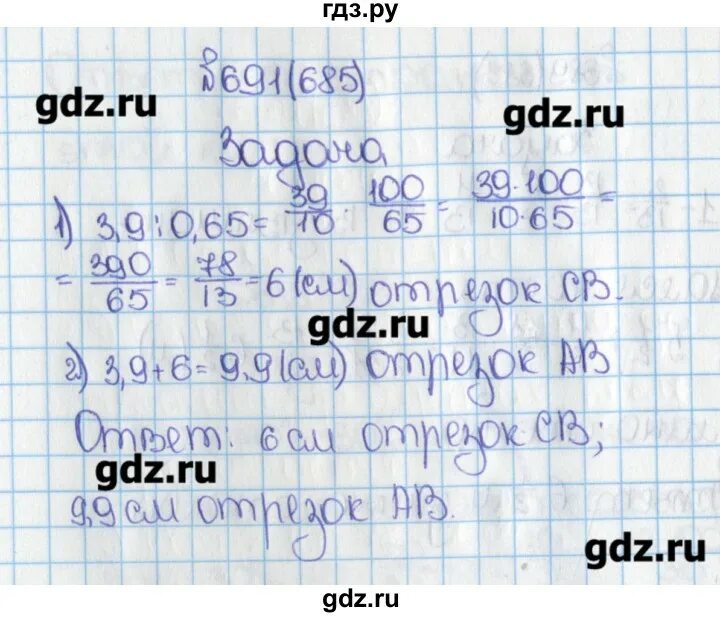 гдз.ру
№691(685)
gdz.ru
gdz.ru
Задача
1) 3,9:0,65= 39/10 · 100/65 = 39·100/10·65 =
= 390/65 = 78/13 = 6(см) отрезок СВ.
gdz.ru
2) 3,9+6=9,9(см) отрезок АВ
Ответ: 6 см отрезок СВ;
gdz.ru
9,9 см отрезок АВ.
gdz.ru
gdz.ru